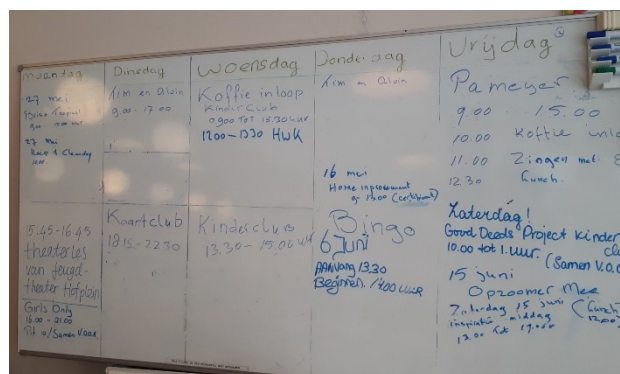 maandag
27 mei
27 mei
15.45-16.45
theaterles
van jeugd-
theater Hofplein
Girls Only
Dinsdag
Kim en Alvin
9.00 - 17.00
Kaartclub
18.15 - 22.30
Woensdag
Koffie inloop
Kinderclub
1200 - 1330 HWK
Kinderclubs
13.30 - 15.00 uur
Donderdag
Kim en Alvin
16 mei
Home improvement
Bingo
6 Juni
AANvang 13.30
Beginnen. 1400 uur
Vrijdag
Pameyer
9.00 15.00
10.00 Koffie inlo
11.00 Zingen met
12.30 Lunch.
Zaterdag!
Good Deeds Project Kinder
10.00 tot 1.uur. (Samen V.O.
15 juni
Opzoomer Mee
Zaterdag 15 juni (Lunch)
inspiratie middag